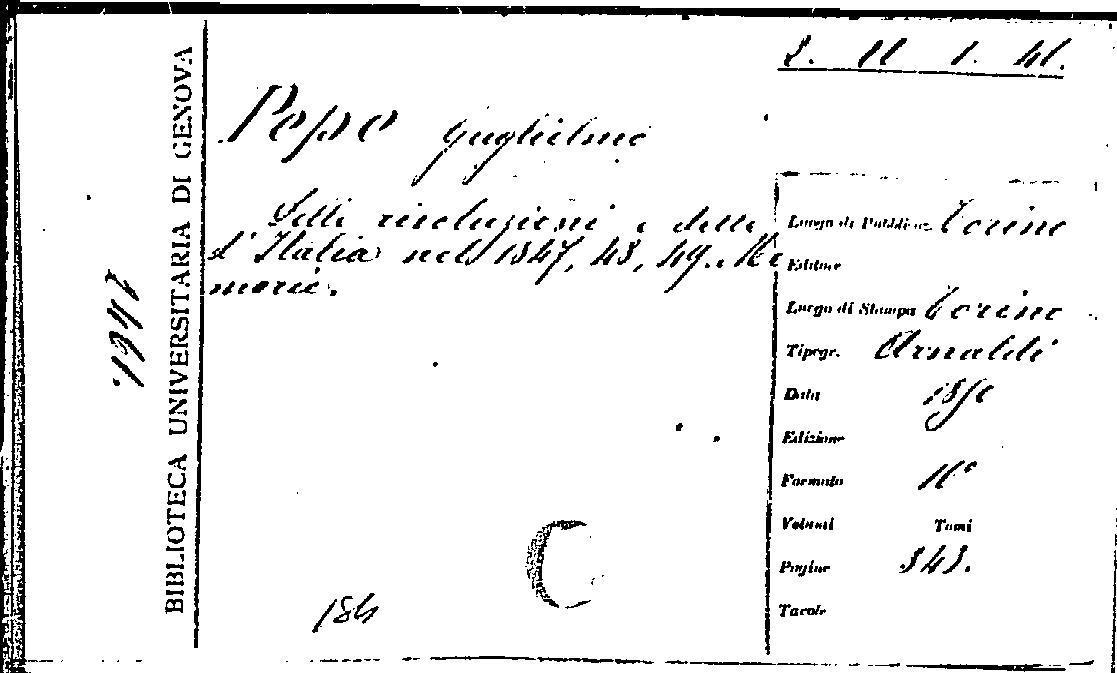 2. U 1. 41.
Pepe Guglielmo
Delle rivoluzioni e delle
d'Italia nel 1847, 48, 49. Me
morie.
BIBLIOTECA UNIVERSITARIA DI GENOVA
Luogo di Pubblic. Torino
Editore
Luogo di Stampa Torino
Tipogr. Arnaldi
Data 1850
Edizione
Formato 16°
Volumi Tomi
Pagine 343.
Tavole
184